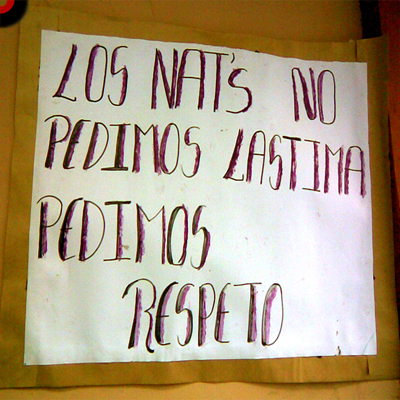 LOS NAT'S NO
PEDIMOS LASTIMA
PEDIMOS
RESPETO